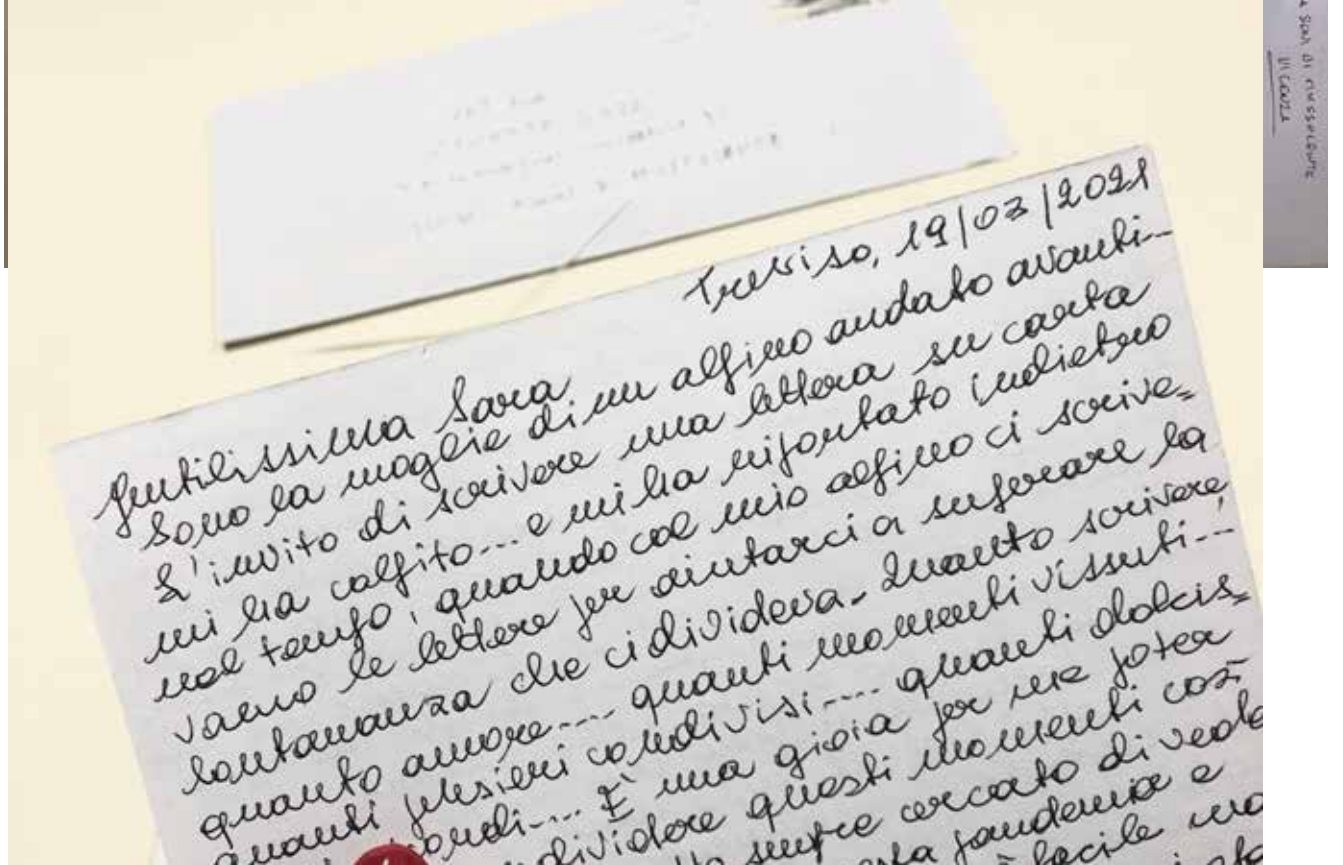 Treviso, 19/03/2021
Gentilissima Sara
Sono la moglie di un alpino andato avanti...
L'invito di scrivere una lettera su carta
mi ha colpito... e mi ha riportato indietro
nel tempo, quando col mio alpino ci scrive=
vamo le lettere per aiutarci a superare la
lontananza che ci divideva. Quanto scrivere,
quanto amore.... quanti momenti vissuti...
quanti pensieri condivisi.... quanti dolcis=
ondi.... È una gioia per me poter
dividere questi momenti così
sempre cercato di vede
pandemia e
facile ma
DI
VICENZA